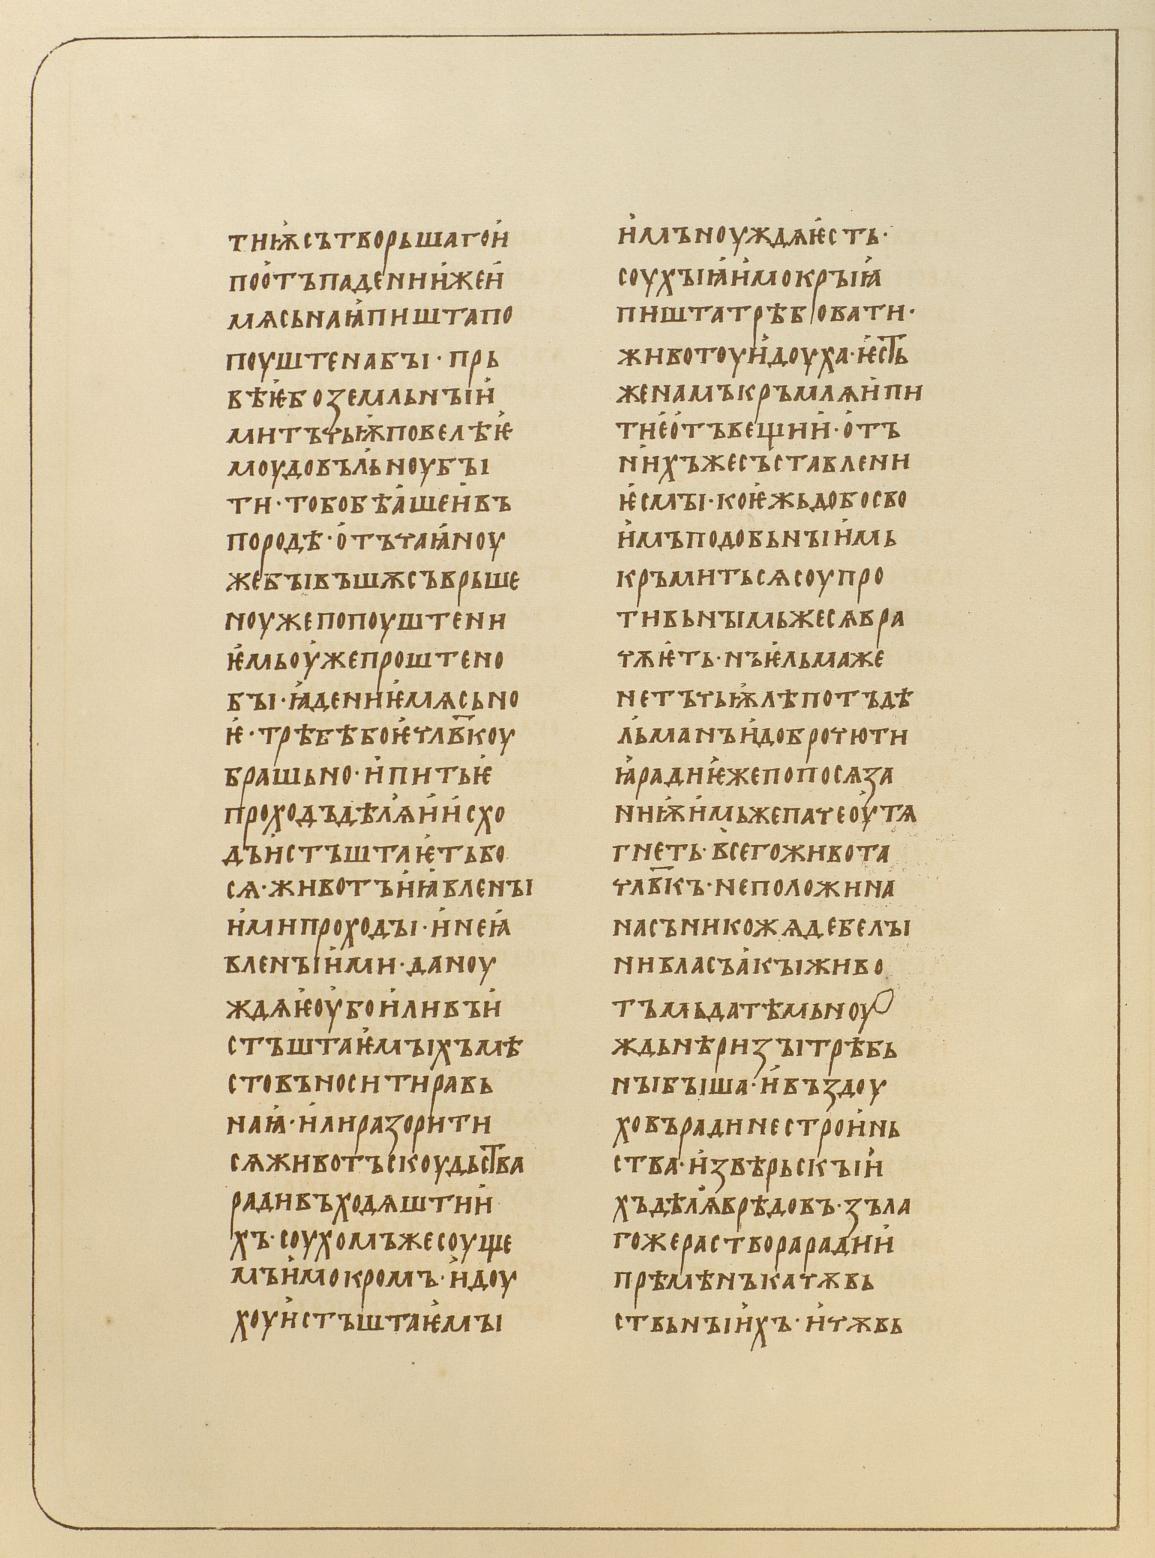 тиѭсътворьшагои
поотъпадениижеи
мѧсьнаꙗпиштапо
поуштенабꙑ · прь
вѣѥбоземльнꙑи
митъчьѭповелѣѥ
моудовъльноубꙑ
ти · тобобѣашеивъ
породѣ · отътаꙗноу
жебꙑвъшѫсъврьше
ноужепопоуштени
ѥмьоужепроштено
бꙑ · ꙗдениѥмѧсьно
ѥ · трѣбѣбоѥчлв҃коу
брашьно · ипитьѥ
проходъдѣлꙗиисхо
дъистъштаѥтьбо
сѧ · животъиꙗвленꙑ
имипроходꙑ · инеꙗ
вленꙑими · даноу
ждаѥоубоиливъи
стъштаѥмꙑхъмѣ
стовъноситиравь
наꙗ · илиразорити
сѧживотъскоудьства
радивъходѧштии
хъ · соухомъжесоуще
мъимокромъ · идоу
хоуистъштаѥмꙑ
имъноуждаѥсть ·
соухꙑꙗимокрꙑꙗ
пиштатрѣбовати ·
животоуидоуха · ѥсть
женамъкръмлѧипи
тиеотъвещии · отъ
нихъжесъставлени
ѥсмꙑ · коѥжьдобосво
имъподобьнꙑимь
кръмитьсѧсоупро
тивьнꙑмьжесѧвра
чѫѥть · нъѥльмаже
нетъчьѭлѣпотъдѣ
льманъидоброчюти
ꙗрадиѥжепопосѧза
ниѭимьжепачеоутѧ
гнеть · всегоживота
члв҃къ · неположина
насъникожѧдебелꙑ
нивласъакꙑживо
тъмьдатѣмьноу
ждьнѣризꙑтрѣбь
нꙑбꙑша · ивъздоу
ховърадинестроинь
ства · извѣрьскꙑи
хъдѣлꙗврѣдовъ · зъла
гожерастворарадии
прѣмѣнъкачѫвь
ствьнꙑихъ · ичѫвь